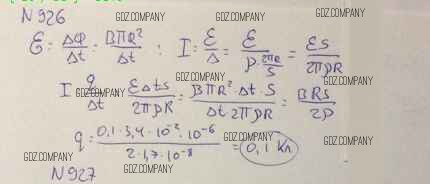 N 926
GDZ.COMPANY GDZ.COMPANY
ℰ = ΔΦ/Δt = BπR²/Δt ; I = ℰ/Δ = ℰ/(ρ 2πR/S) = ℰS/2πρR
GDZ.COMPANY GDZ.COMPANY
I q/Δt ℰΔtS/2πρR = BπR²·Δt·S/Δt2πρR = BRS/2ρ
GDZ.COMPANY GDZ.COMPANY GDZ.COMPANY
q = 0,1·3,4·10⁻²·10⁻⁶/2·1,7·10⁻⁸ = 0,1 Кл
GDZ.COMPANY GDZ.COMPANY
GDZ.COMPANY GDZ.COMPANY
N 927